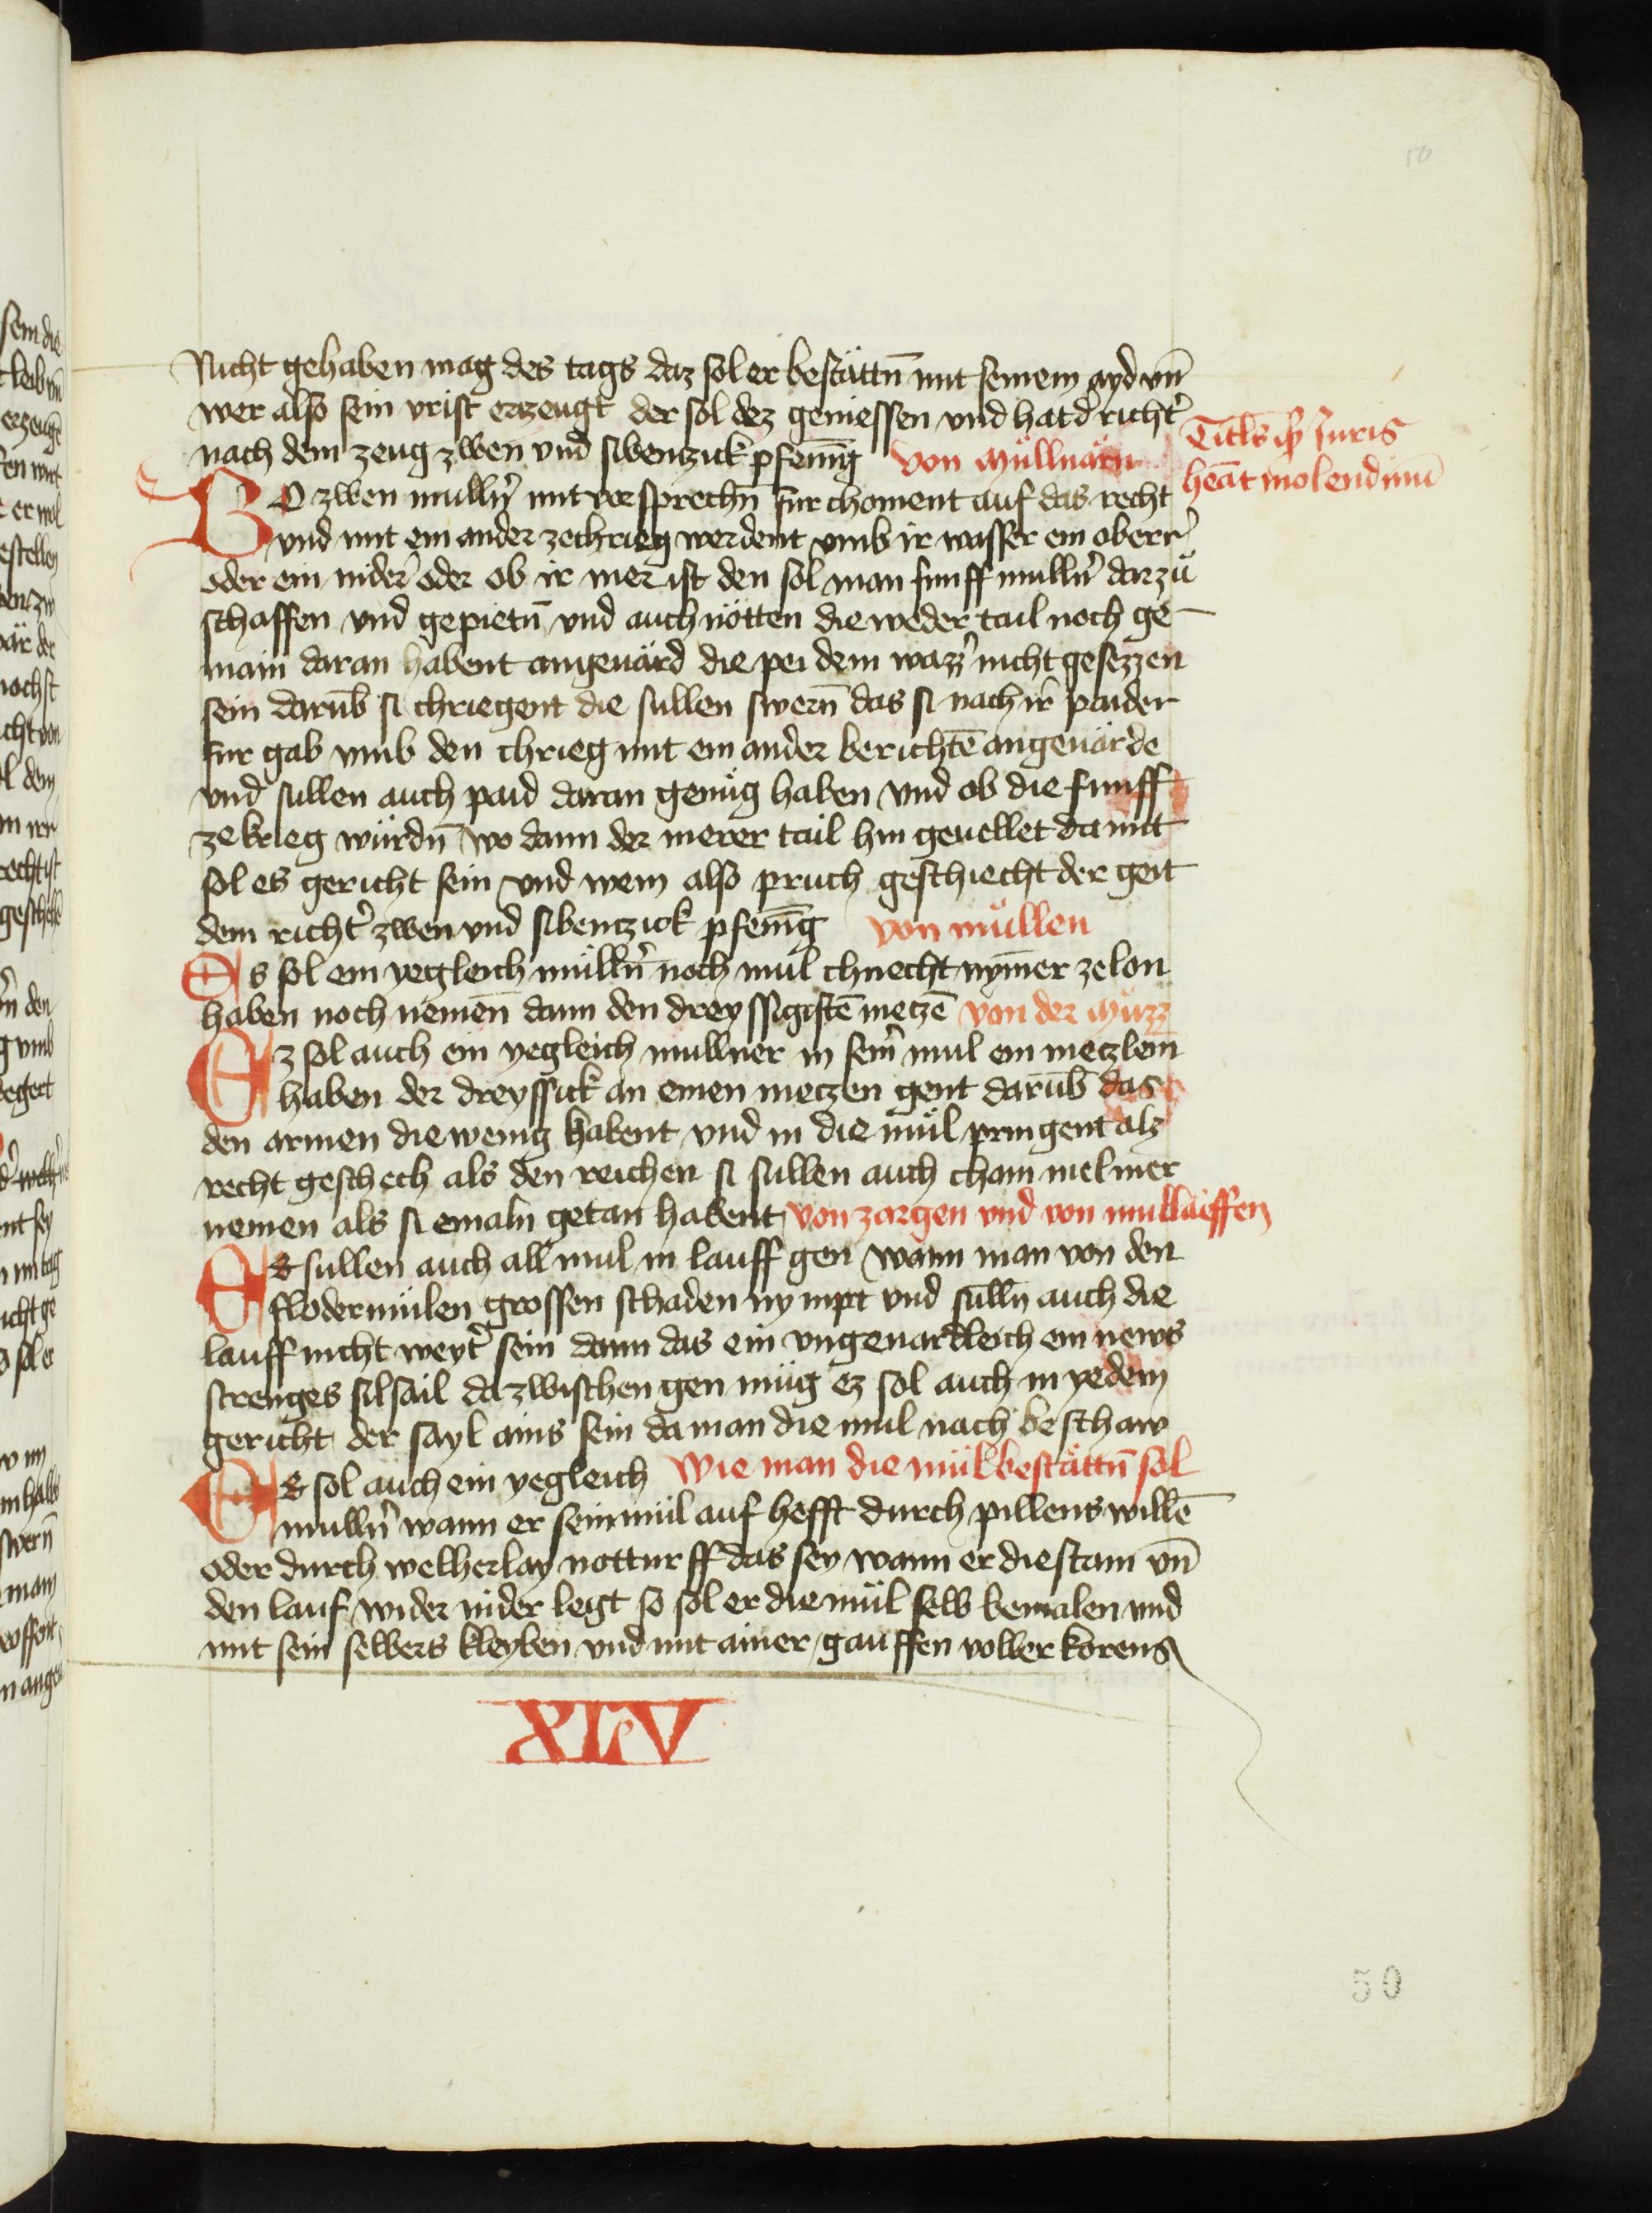 50
Nicht gehaben mag des tags daz sol er bestättn̄ mit seinem ayd vn̄
wer also sein vrist erzeugt der sol dez geniessen vnd hat d' richt'
nach dem zeug zwen vnd sibenzick pfenīg von müllnärn
Titls
Juris
heāt molendinū
SO zwen mulln' mit vorsprechn̄ fur choment auf das recht
vnd mit ein ander zechrieg werdent vmb ir wasser ein oberr'
oder ein nider' oder ob ir mer ist den sol man funff mulln' darzů
schaffen vnd gepietn̄ vnd auch nötten die weder tail noch ge-
main daran habent angeuärd die pei dem wazz' nicht gesezzen
sein darūb si chriegent die sullen swern̄ das si nach ir' paider
fur gab vmb den chrieg mit ein ander berichtē angeuärde
vnd sullen auch paid daran genüg haben vnd ob die funff
zekrieg würdn̄ wo dann der merer tail hin geuellet damit
sol es gericht sein vnd wem also pruch geschiecht der geit
dem richt' zwen vnd sibenczick pfenīg von müllen
Es sol ein yegleich mülln' noch mul chnecht nym̄er zelon
haben noch nemen̄ dann den dreyssigistē metzē von der müzz
Ez sol auch ein yegleich mullner in sein' mul ein metzlein̄
haben der dreyssick an einen metzen gent darūb das
den armen die wenig habent vnd in die mül pringent alz
recht geschech als den reichen si sullen auch chain mel mer
nemen als si emaln getan habent von zargen vnd von mullaeffen
Es sullen auch all mul in lauff gen wann man von den
flodermülen grossen schaden nympt vnd sulln̄ auch die
lauff nicht weyt' sein dann das ein vngeuardleich ein news
strenges silsail dazwischen gen müg ez sol auch in yedem
gericht der sayl ains sein da man die mul nach beschaw
Es sol auch ein yegleich Wie man die mül bestättn̄ sol
mulln' wann er sein mül auf hefft durch pillens willē
oder durch welherlay notturfft das sey wann er die stain vn̄
den lauf wider nider legt so sol er die mül selb bemalen vnd
mit sein selbers kleyben vnd mit ainer gauffen voller korens
XLV
50